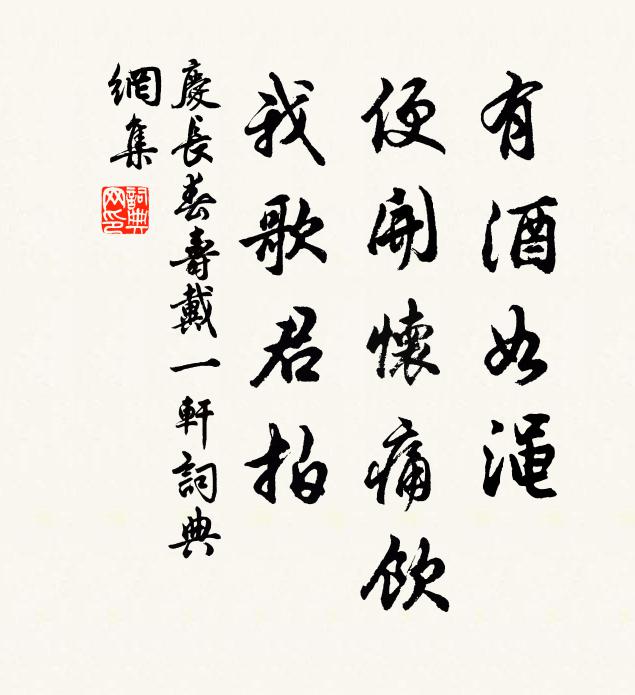 有酒如渑
便開懷痛飲
我歌君拍
慶長春壽戴一軒詞典
網集
詞典
网印